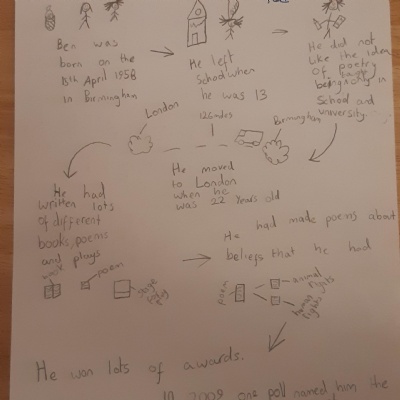 Ben was
born on the
15th April 1958
in Birmingham
He left
School when
he was 13
He did not
like the idea
of poetry
being only in
School and
university.
London
126 miles
Birmingham
He moved
to London
when he
was 22 years old
He had
written lots
of different
books, poems
and plays
book
poem
stage
play
He had made poems about
beliefs that he had
poem
animal
rights
human
rights
He won lots of awards.
In 2009 one poll named him the